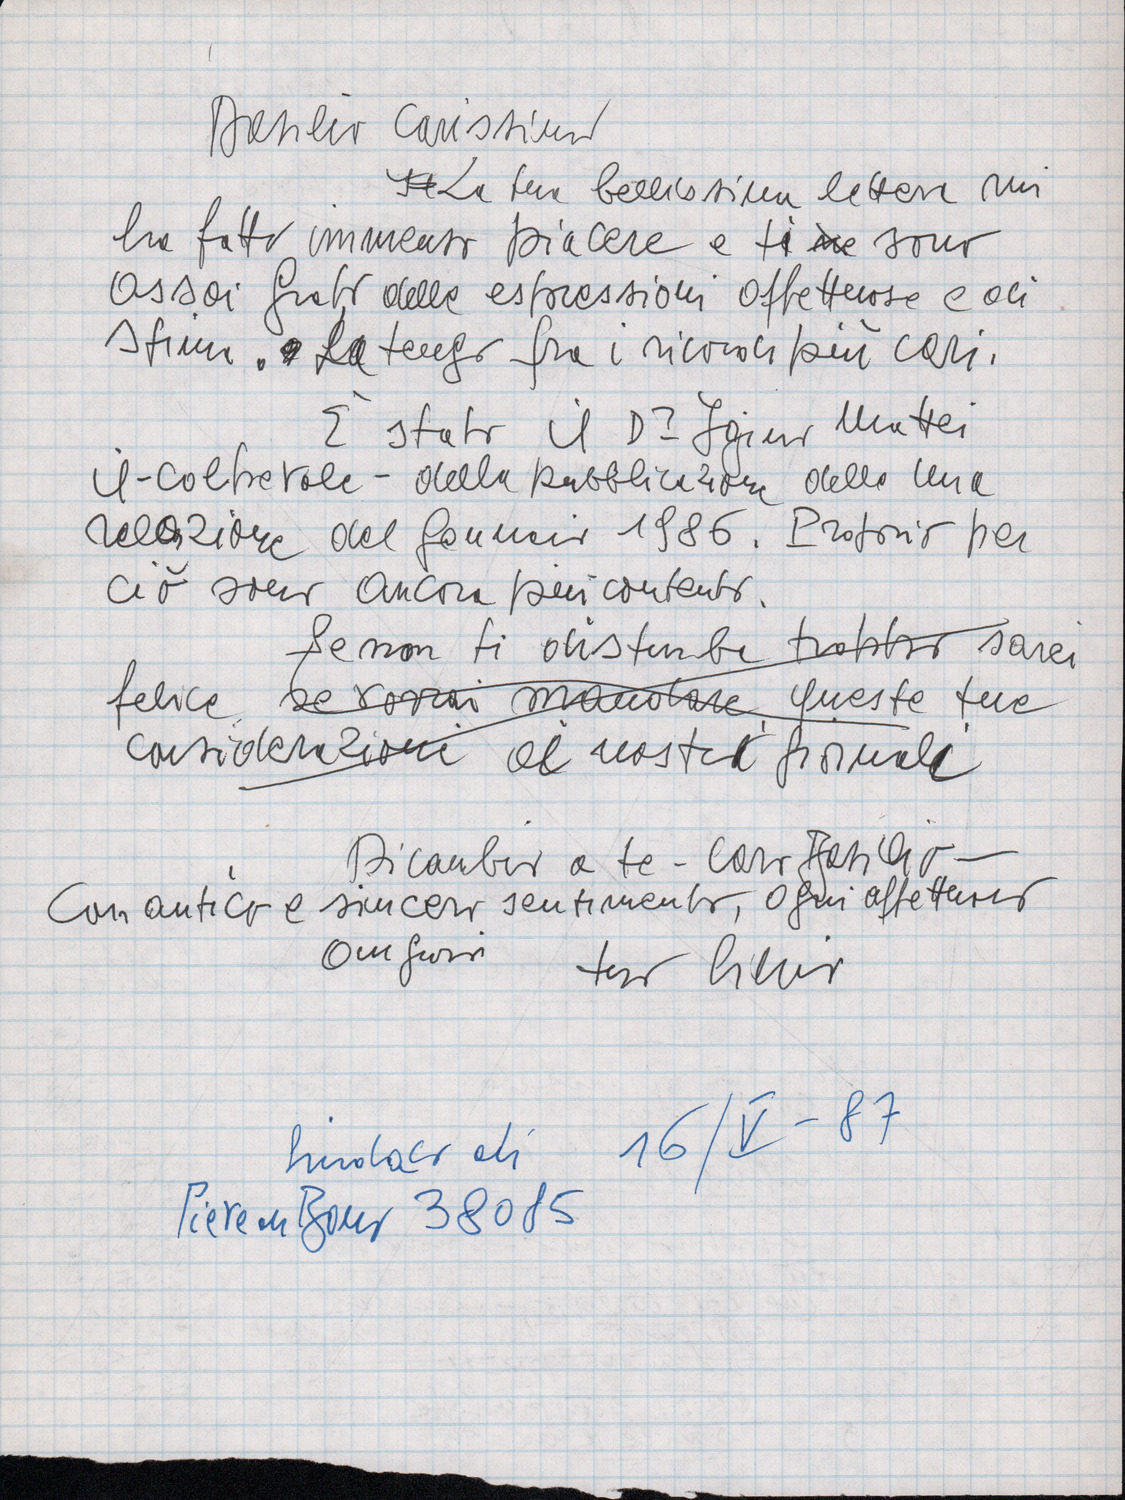 Basilio Carissimo
La tua bellissima lettera mi
ha fatto immenso piacere e ti ne sono
assai grato delle espressioni affettuose e di
stima. La tengo fra i ricordi più cari.
È stato il Dr Igino Mattei
il - colpevole - della pubblicazione della mia
relazione del Gennaio 1986. Proprio per
ciò sono ancora più contento.
Se non ti disturbe troppo sarei
felice se vorrai mandare queste tue
considerazioni ai nostri giornali
Ricambio a te - caro Basilio -
Con antico e sincero sentimento, ogni affettuoso
augurio tuo Livio
Sindaco di 16/V - 87
Pieve di Bono 38085